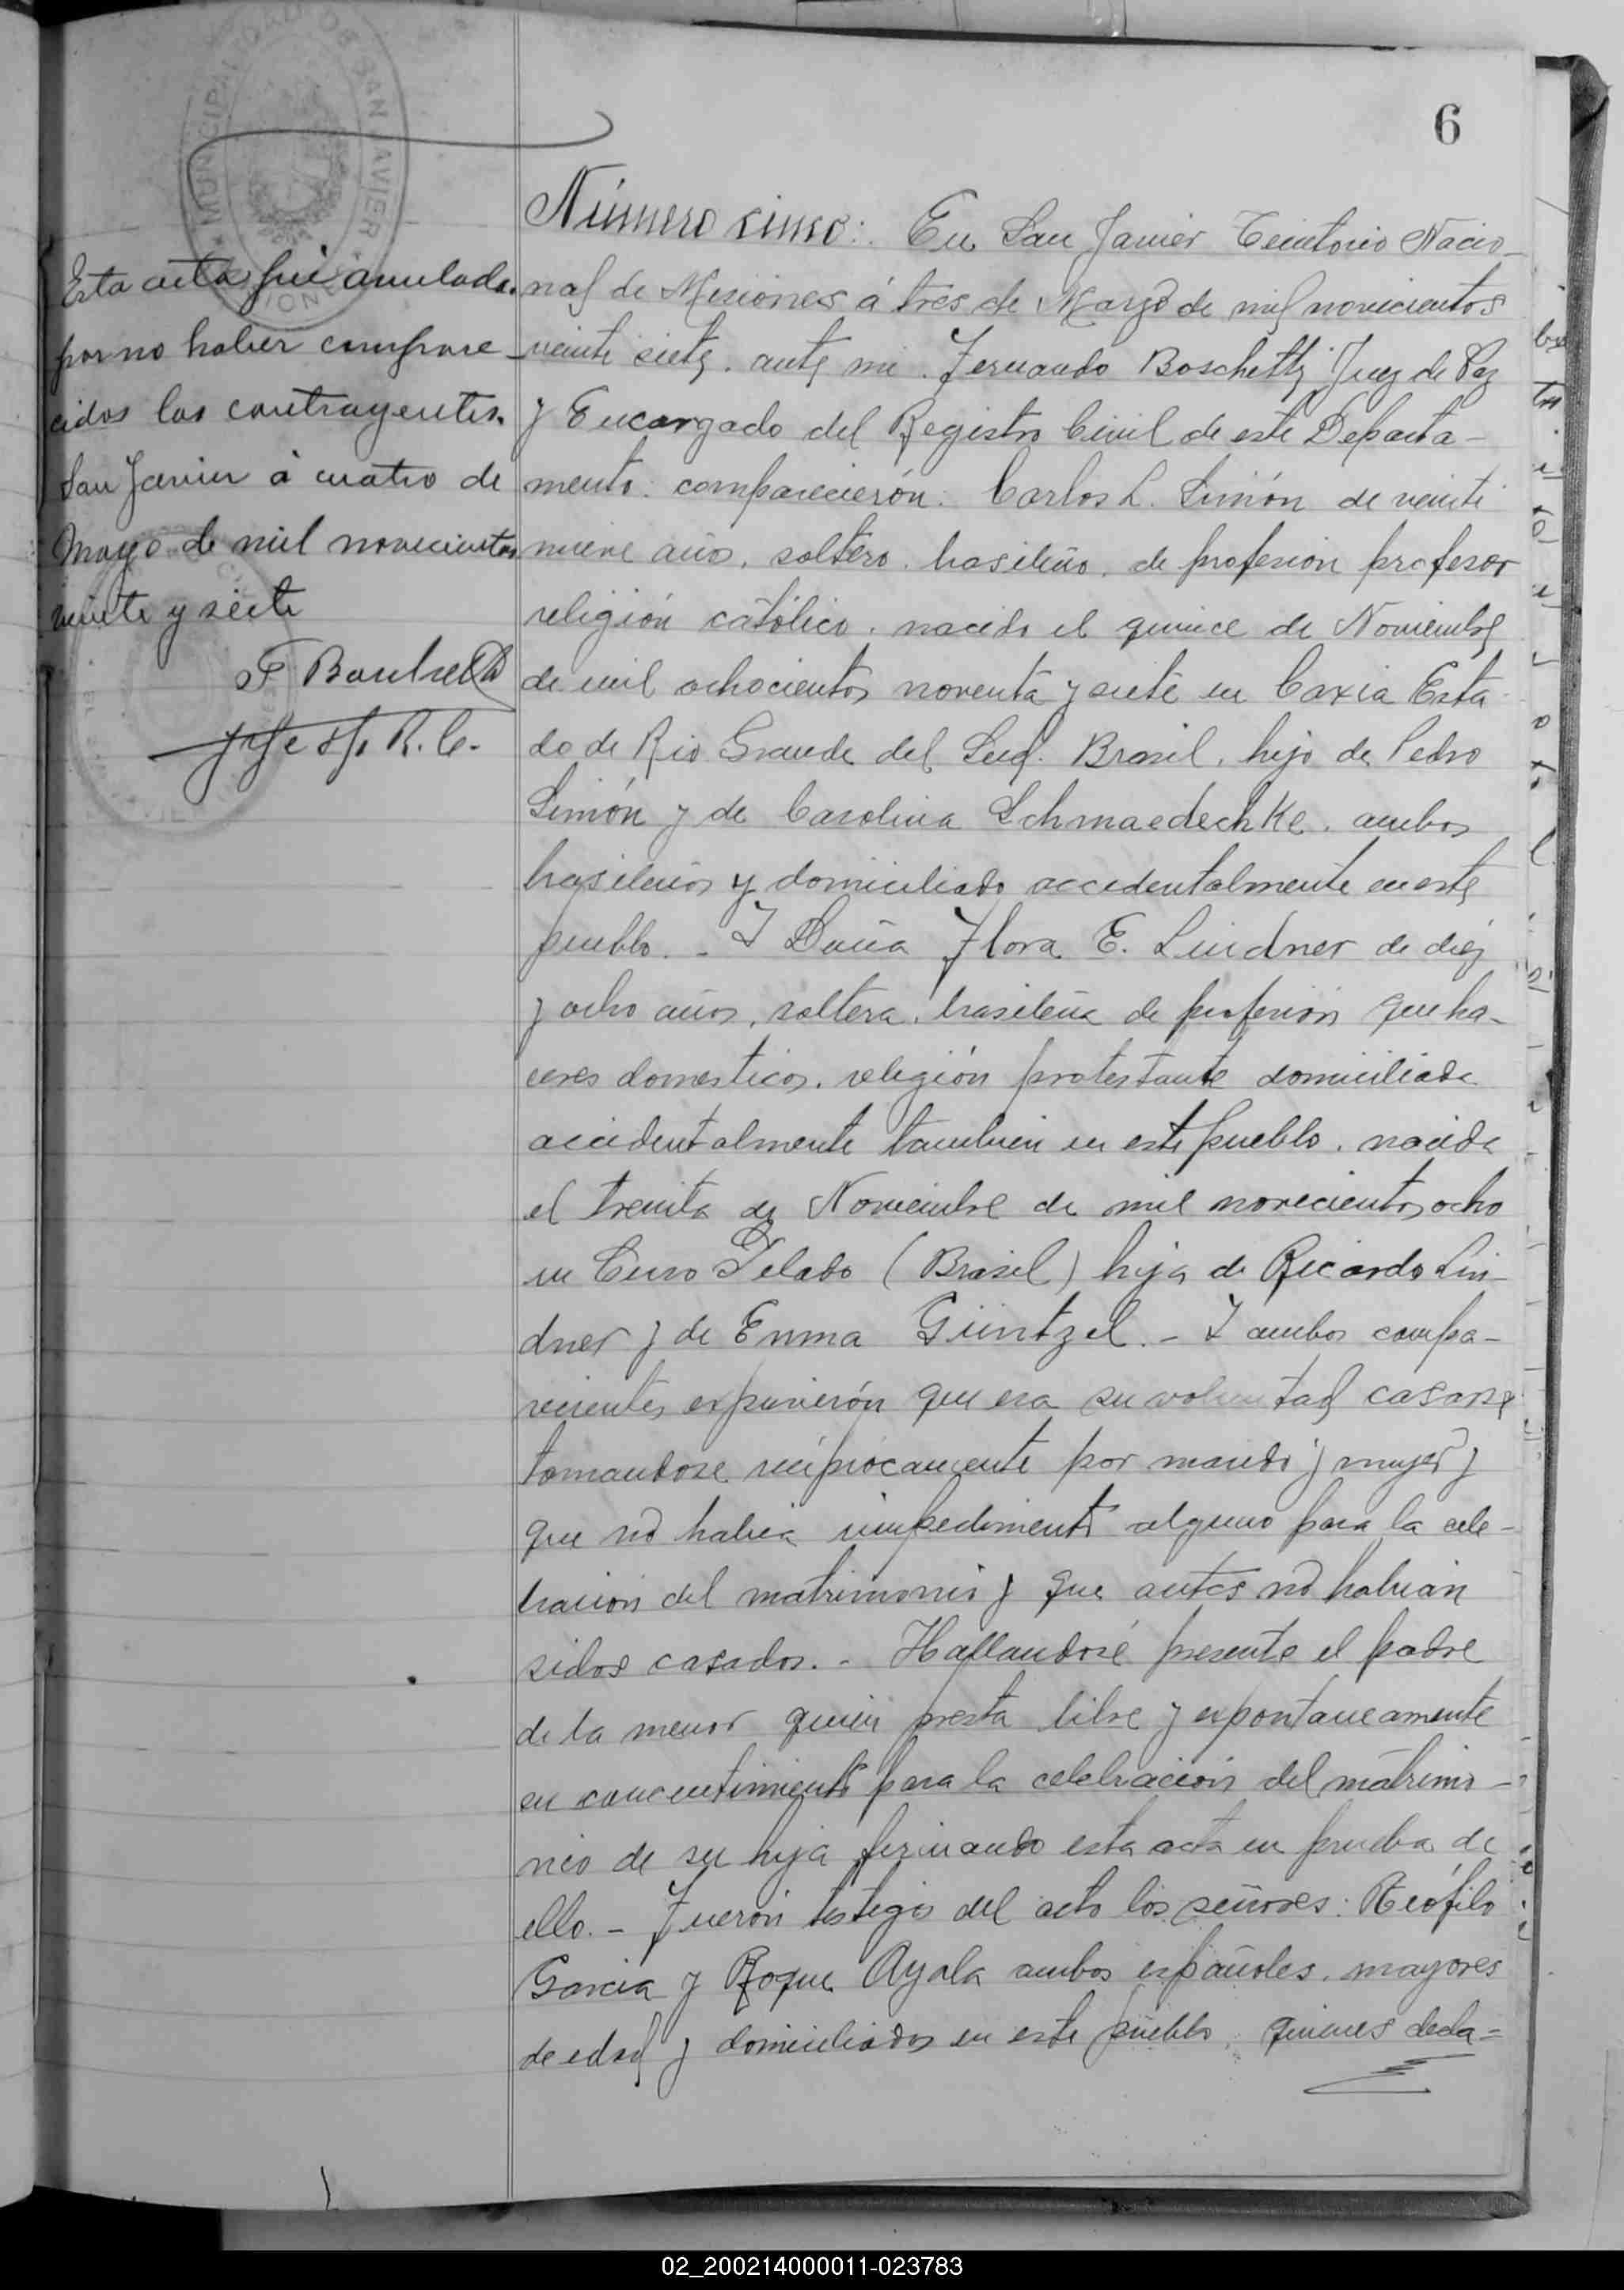 6
MUNICIPALIDAD DE SAN JAVIER
MISIONES
Esta acta fué anulada
por no haber compare-
cidos los contrayentes.
San Javier á cuatro de
Mayo de mil novecientos
veinte y siete
Número cinco: En San Javier Territorio Nacio-
nal de Misiones á tres de Marzo de mil novecientos
veinte siete. ante mi. Fernando Boschetti Juez de Paz
y Encargado del Registro Civil de este Departa-
mento. comparecierón: Carlos L. Simón de veinti
nueve años, soltero. brasileño. de profesion profesor
religión católico. nacido el quince de Noviembre
de mil ochocientos noventa y siete en Caxia Esta
do de Rio Grande del Sud. Brasil. hijo de Pedro
Simón y de Carolina Schmaedechke. ambos
brasileños y domiciliado accidentalmente en este
pueblo. - I Doña Flora E. Lindner de diéz
y ocho años, soltera. brasileña de profesión queha-
ceres domesticos. religión protestante domiciliada
accidentalmente tambien en este pueblo. nacida
el treinta de Noviembre de mil novecientos ocho
en Cerro Pelado (Brasil) hija de Ricardo Lin-
dner y de Emma Güntzel. - I ambos compa-
recientes expusierón que era su voluntad casarse
tomandose reciprocamente por marido y mujer y
que no habia impedimento alguno para la cele-
bracion del matrimonio y que antes no habian
sidos casados. - Hallandosé presente el padre
de la menor quien presta libre y expontaneamente
su concentimiento para la celebracion del matrimo-
nio de su hija firmando esta acta en prueba de
ello. - Fueron testigos del acto los señores: Teófilo
Garcia y Roque Ayala ambos españoles. mayores
de edad y domiciliados en este pueblo. quienes decla=
02_200214000011-023783